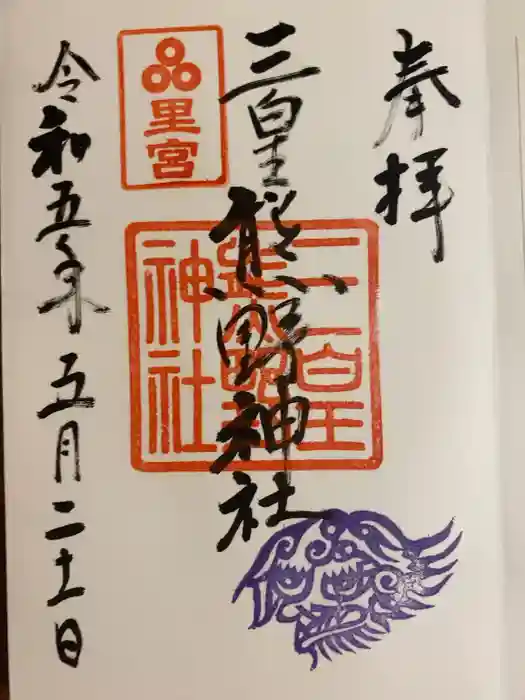 奉拝
三皇熊野神社
三皇熊野神社
里宮
令和五年五月二十一日